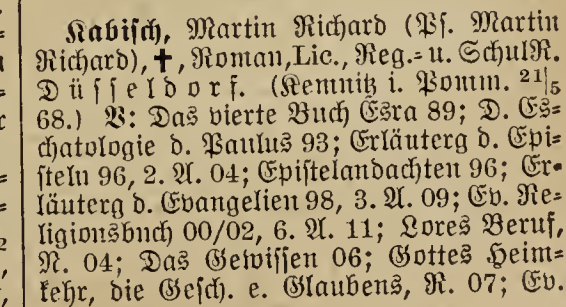 Kabisch, Martin Richard (Ps. Martin
Richard), ✝, Roman, Lic., Reg.- u. SchulR.
Düsseldorf. (Kemnitz i. Pomm. 21/5
68.) V: Das vierte Buch Esra 89; D. Es=
chatologie d. Paulus 93; Erläuterg d. Epi=
steln 96, 2. A. 04; Epistelandachten 96; Er=
läuterg d. Evangelien 98, 3. A. 09; Ev. Re=
ligionsbuch 00/02, 6. A. 11; Lores Beruf,
R. 04; Das Gewissen 06; Gottes Heim=
kehr, die Gesch. e. Glaubens, R. 07; Ev.